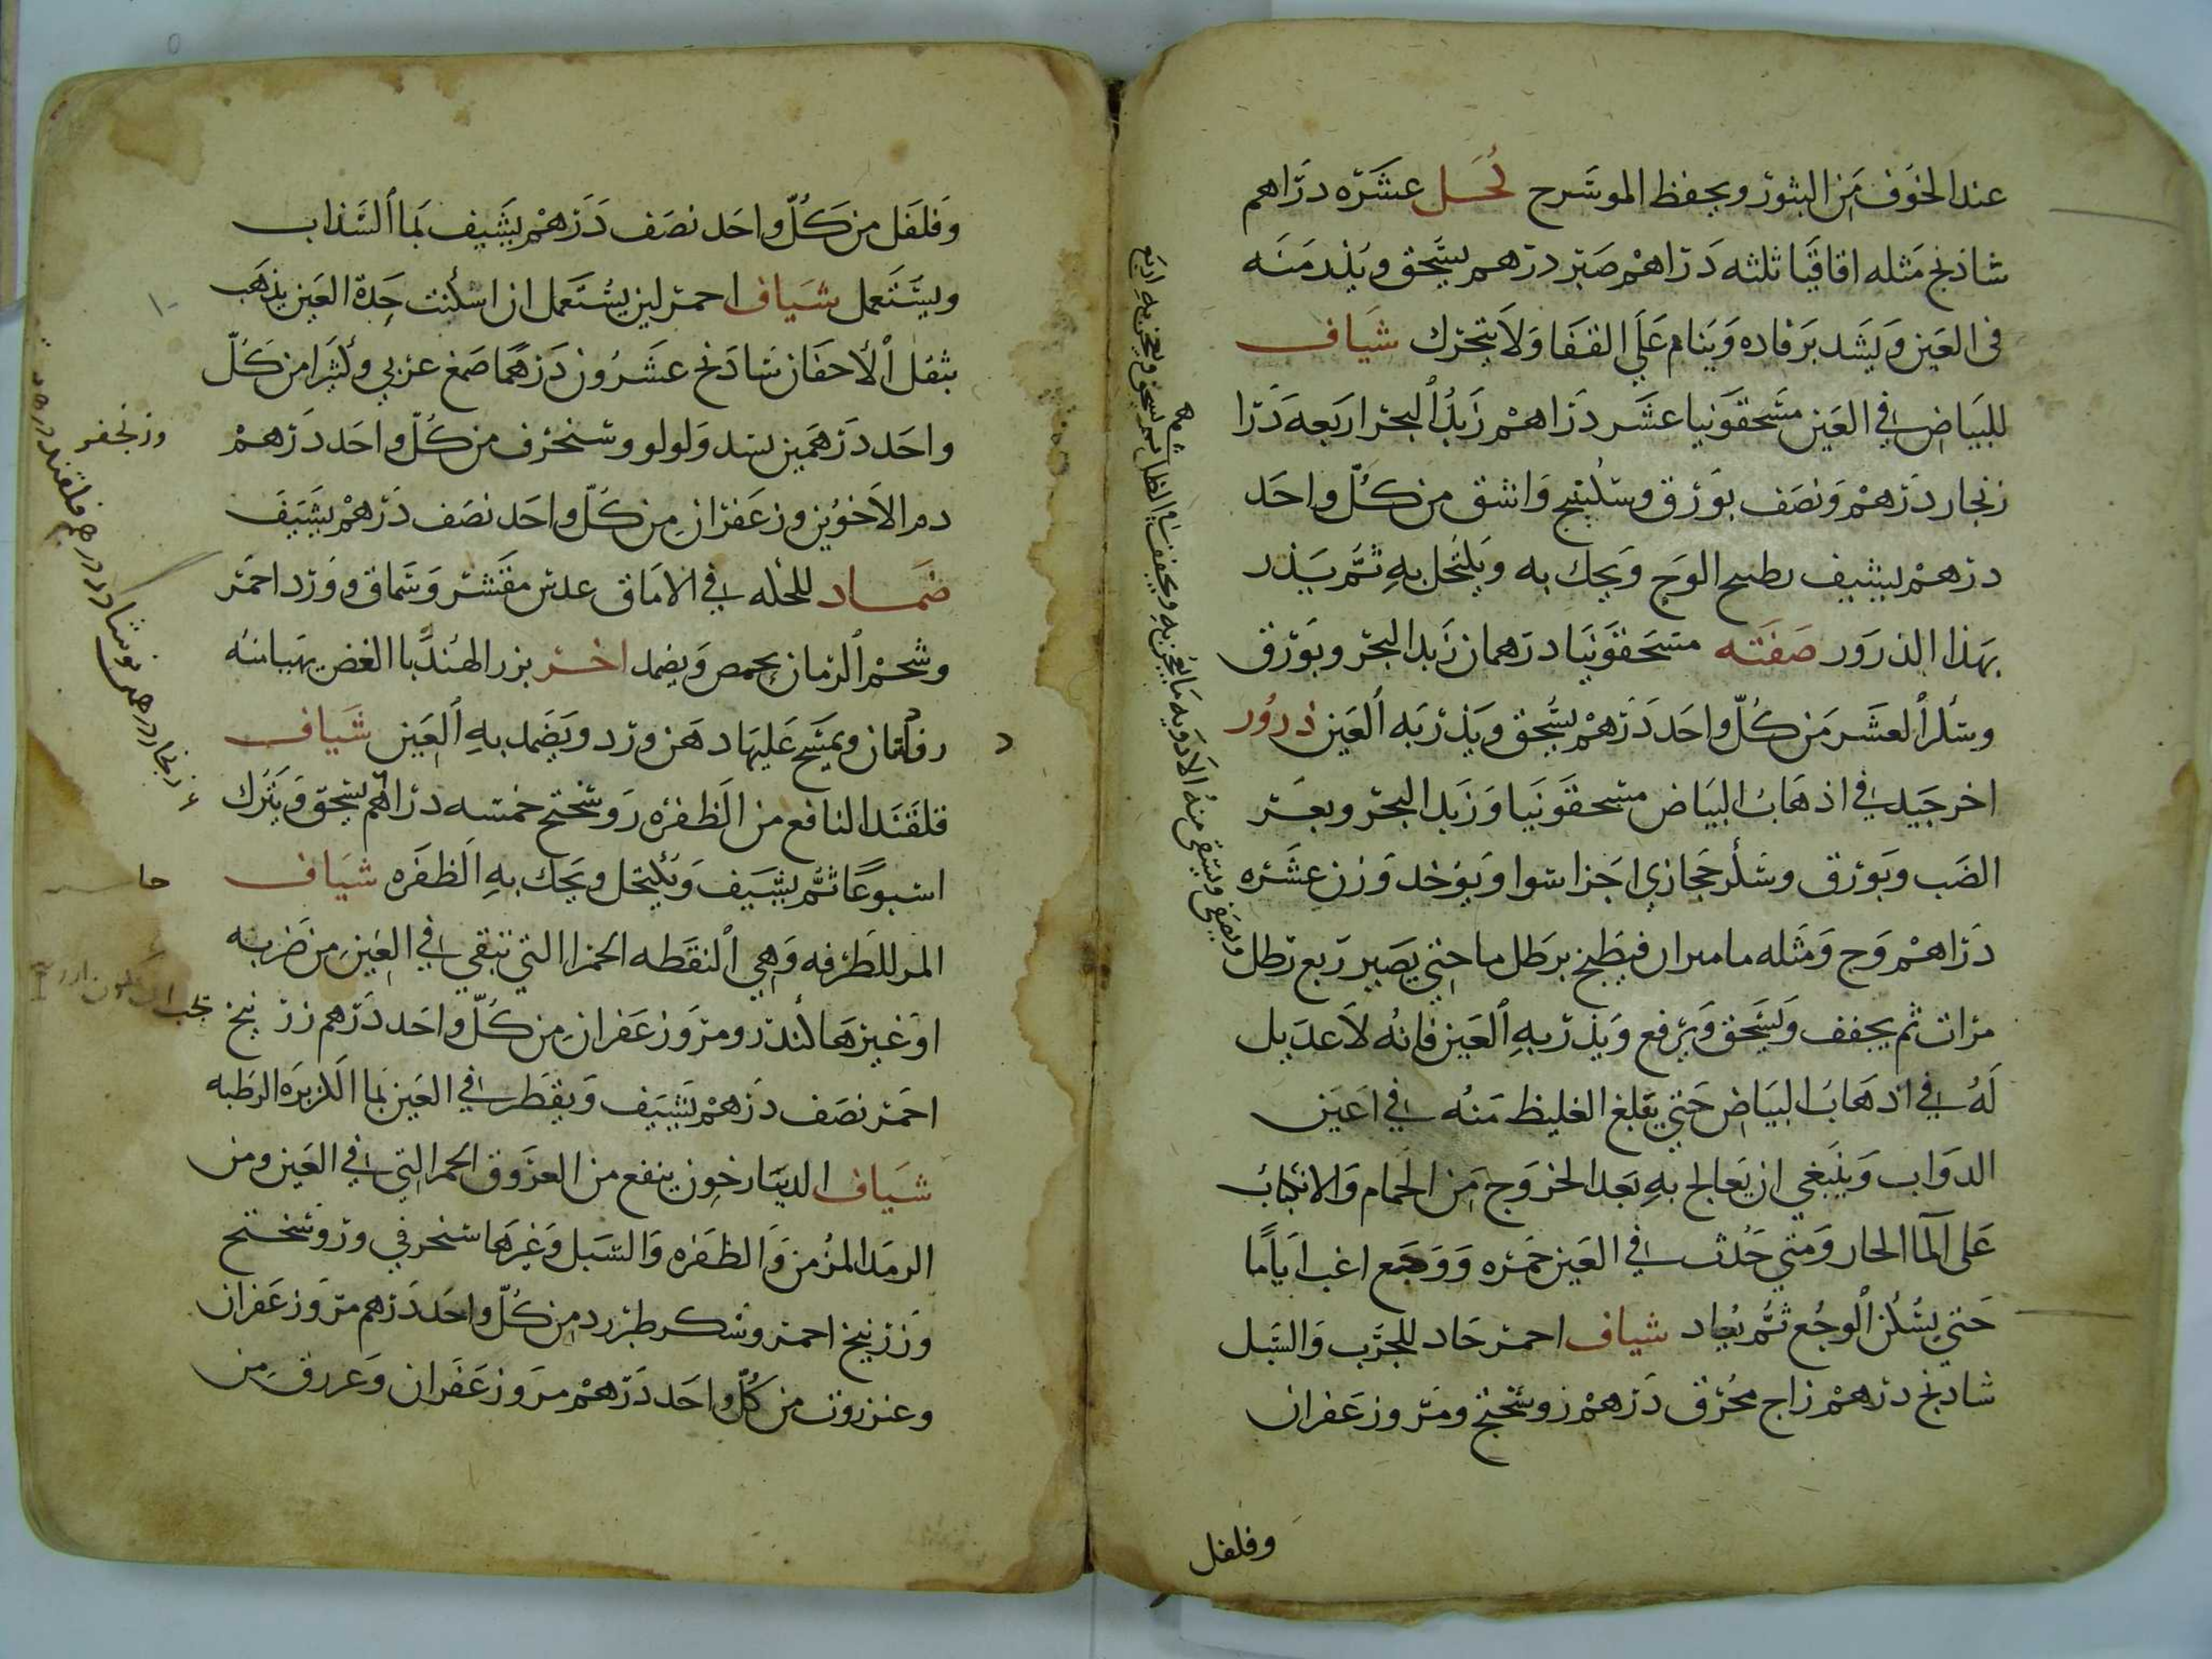 عند الخوف من البثور ويحفظ الموسرج كحل عشره دراهم
شاذنج مثله اقاقيا ثلثه دراهم صبر درهم يسحق ويذر منه
فى العين ويشد برفاده وينام على القفا ولا يتحرك شياف
للبياض في العين مسحقونيا عشر دراهم زبد البحر اربعه درا
زنجار درهم ونصف بورق وسكبينج واشق من كل واحد
درهم يشيف بطبيح الوج ويحك به ويكتحل به ثم يذر
بهذا الذرور صفته مسحقونيا درهمان زبد البحر وبورق
وسكر العشر من كل واحد درهم يسحق ويذر به العين ذرور
اخر جيد في اذهاب البياض مسحقونيا وزبد البحر وبعر
الضب وبورق وسكر حجازي اجزا سوا ويوخذ وزن عشره
دراهم وج ومثله ماميران فيطبخ برطل ما حتى يصير ربع رطل
مرات ثم يجفف ويسحق ويرفع ويذر به العين فانه لا عديل
له في اذهاب البياض حتى يقلع الغليظ منه في اعين
الدواب وينبغي ان يعالج به بعد الخروج من الحمام والانكباب
على الما الحار ومتى حدث في العين حمره ووجع اغب اياما
حتى يسكن الوجع ثم يعاد شياف احمر حاد للجرب والسبل
شاذنج درهم زاج محرق درهم روسختج ومر وزعفران
وفلفل
ويصفى ويستقى منه الادويه ما يعجن به ويجفف في الظل ثم يسحق ويعجن به اربع
وفلفل من كل واحد نصف درهم يشيف بما السذاب
ويستعمل شياف احمر لين يستعمل ان اسكنت حدة العين يذهب
بثقل الاجفان شاذنج عشرون درهما صمغ عربي وكثيرا من كل
واحد درهمين بسد ولولو وسنجرف من كل واحد درهم
دم الاخوين وزعفران من كل واحد نصف درهم يشيف
ضماد للحكه في الاماق عدس مقشر وسماق وورد احمر
وشحم الرمان يحمص ويضمد اخر بزر الهندبا الغض يهيا منه
رفادتان ويمسح عليها دهن ورد ويضمد به العين شياف
قلقند النافع من الظفره روسختج خمسه دراهم يسحق ويترك
اسبوعا ثم يشيف ويكتحل ويحك به الظفره شياف
المر للطرفه وهي النقطه الحمرا التي تبقي في العين من ضربه
او غيرها كندر ومر وزعفران من كل واحد درهم زرنيخ
احمر نصف درهم يشيف ويقطر في العين بما الكزبره الرطبه
شياف الدينارخون ينفع من العروق الحمر التي في العين ومن
الرمد المزمن والظفره والسبل وغيرها سنجرفي وروسختج
وزرنيخ احمر وسكر طبرزد من كل واحد درهم مر وزعفران
وعنزروت من كل واحد درهم مر وزعفران وعروق من
وزنجفر